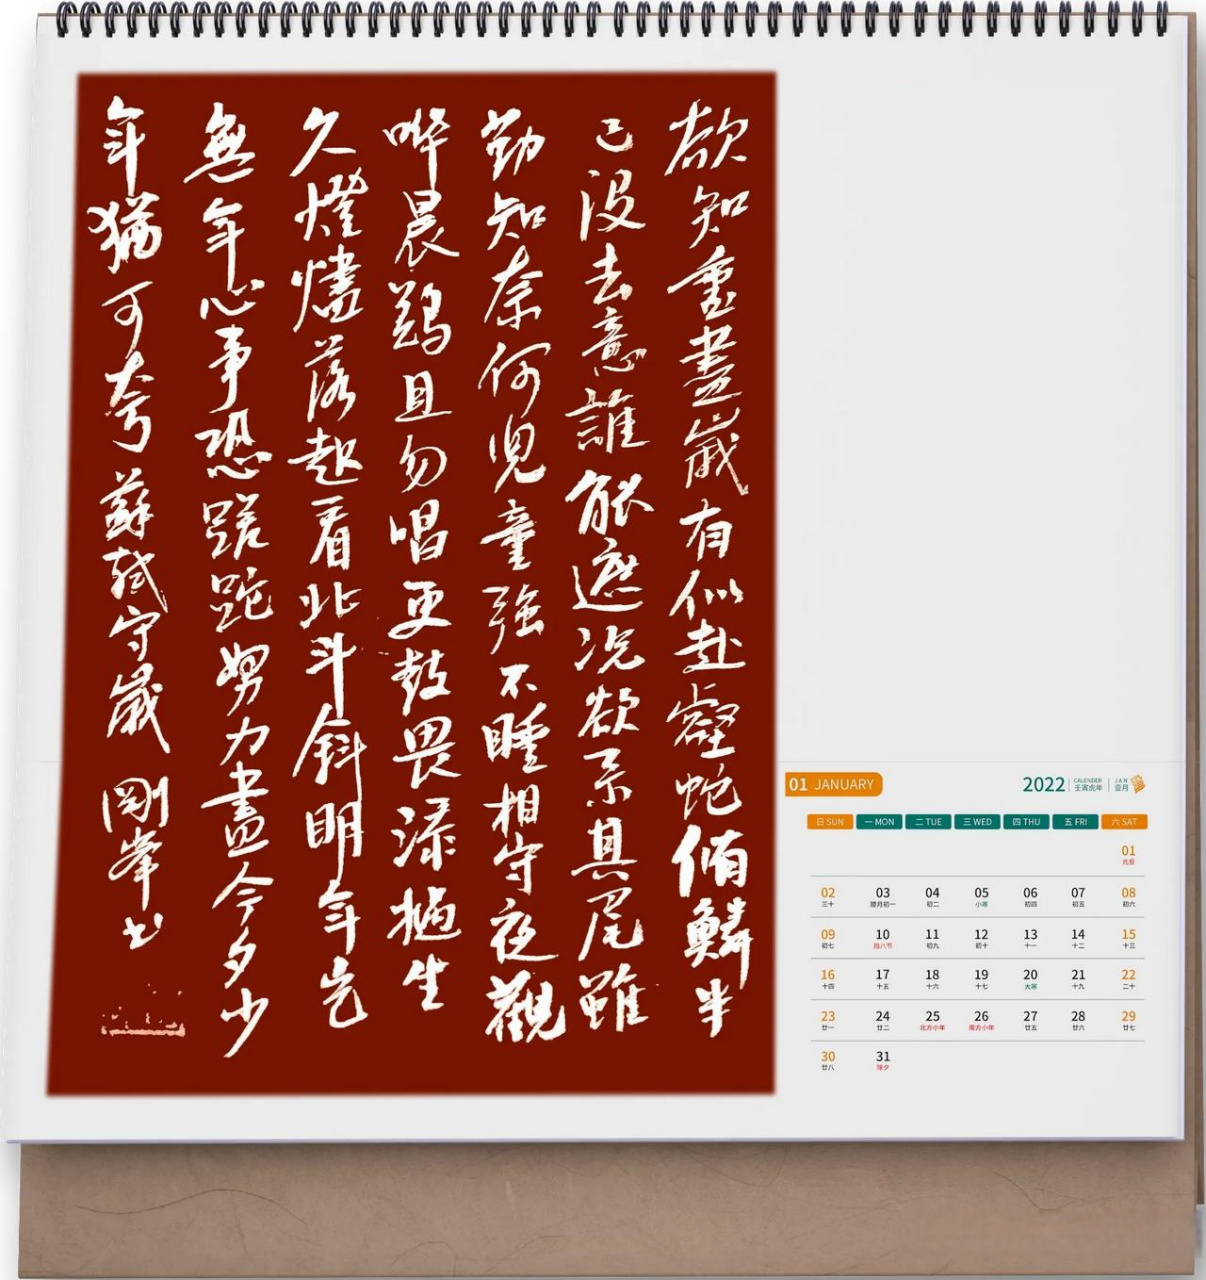 欲知垂盡歲有似赴壑蛇脩鱗半
已没去意誰能遮况欲系其尾雖
勤知奈何兒童強不睡相守夜觀
哗晨鷄且勿唱更鼓畏添撾生
久燈燼落起看北斗斜明年岂
無年心事恐蹉跎努力盡今夕少
年猶可夸 蘇軾守歲 剛峯书
01 JANUARY
2022 CALENDER 壬寅虎年 JAN 壹月
日 SUN 一 MON 二 TUE 三 WED 四 THU 五 FRI 六 SAT
01
元旦
02 03 04 05 06 07 08
三十 腊月初一 初二 小寒 初四 初五 初六
09 10 11 12 13 14 15
初七 腊八节 初九 初十 十一 十二 十三
16 17 18 19 20 21 22
十四 十五 十六 十七 大寒 十九 二十
23 24 25 26 27 28 29
廿一 廿二 北方小年 南方小年 廿五 廿六 廿七
30 31
廿八 除夕